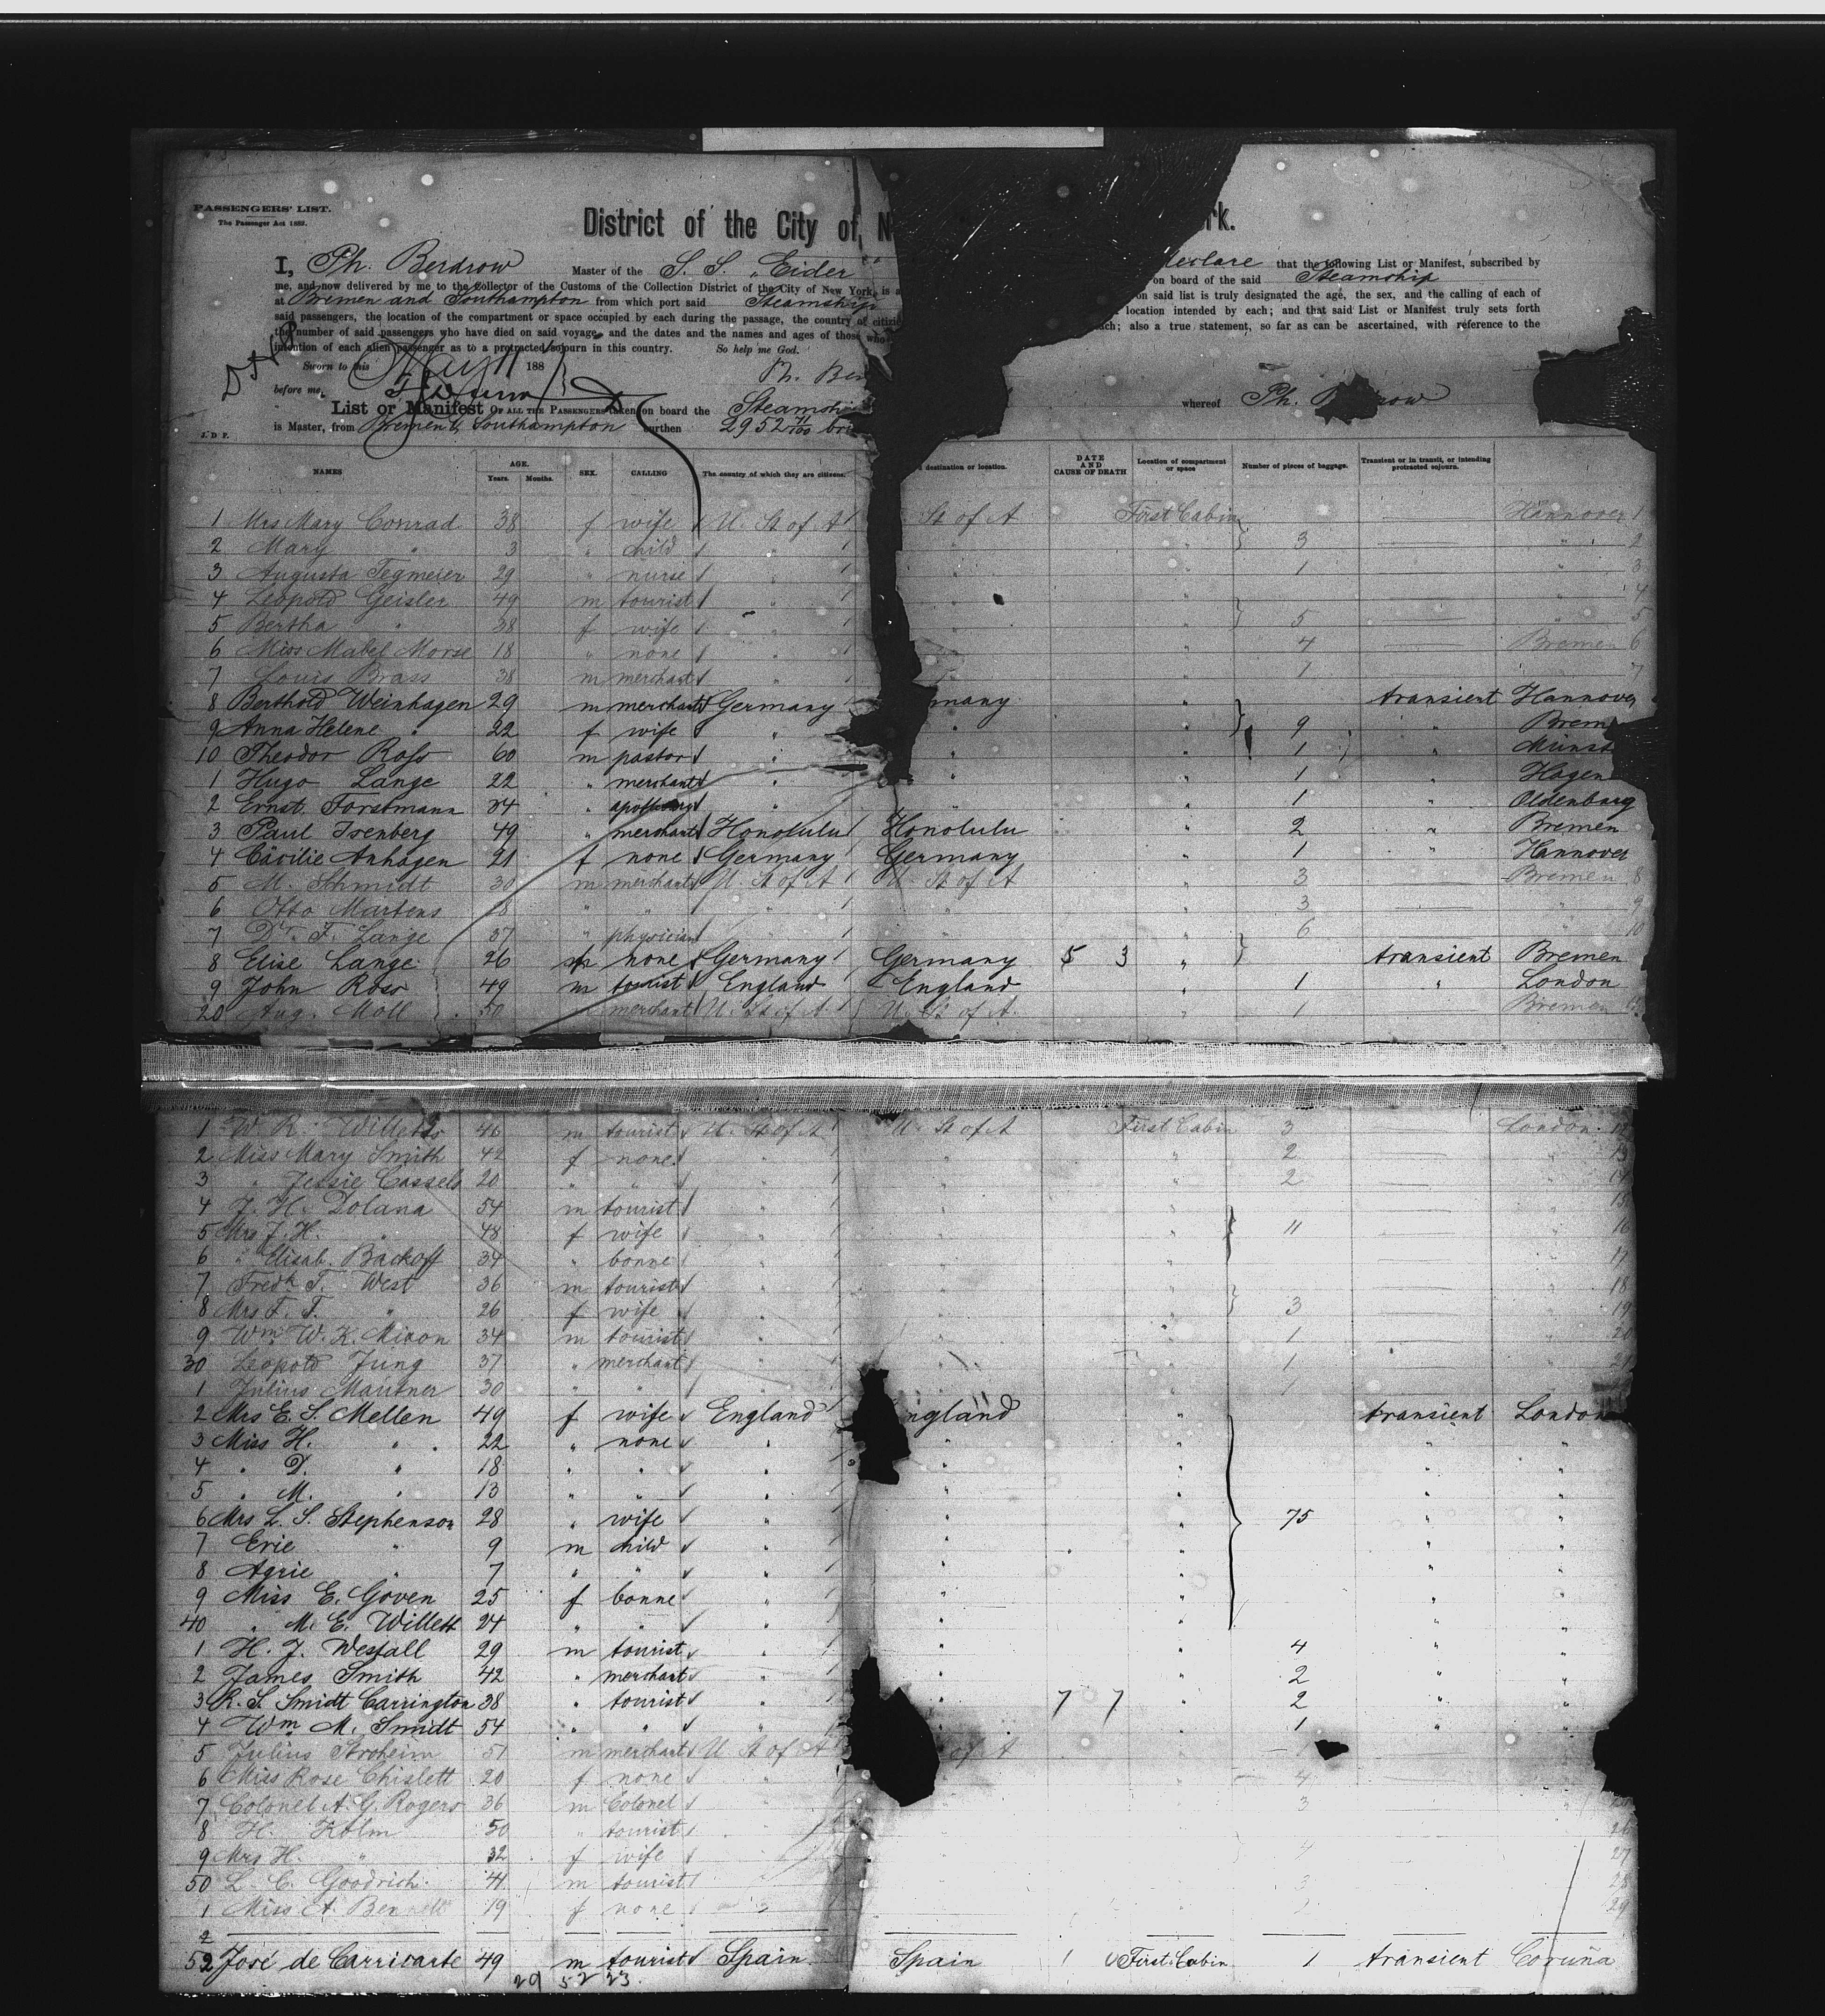 PASSENGERS' LIST.
The Passenger Act 1882.
District of the City of N rk.
I, Ph. Berdrow Master of the S. S. "Eider" declare that the following List or Manifest, subscribed by
me, and now delivered by me to the Collector of the Customs of the Collection District of the City of New York, is a on board of the said Steamship
at Bremen and Southampton from which port said Steamship on said list is truly designated the age, the sex, and the calling of each of
said passengers, the location of the compartment or space occupied by each during the passage, the country of citize location intended by each; and that said List or Manifest truly sets forth
the number of said passengers who have died on said voyage, and the dates and the names and ages of those who ach; also a true statement, so far as can be ascertained, with reference to the
intention of each alien passenger as to a protracted sojourn in this country. So help me God.
Sworn to this May 11 188 Ph. Ber
before me,
List or Manifest OF ALL THE PASSENGERS taken on board the Steamship whereof Ph. Berdrow
is Master, from Bremen & Southampton burthen 2952
J. D. P.
NAMES AGE. Years. Months. SEX. CALLING The country of which they are citizens. d destination or location. DATE AND CAUSE OF DEATH Location of compartment or space Number of pieces of baggage. Transient or in transit, or intending protracted sojourn.
1 Mrs Mary Conrad 38 f wife U. St of A St of A First Cabin Hannover 1
2 Mary " 3 " child " " " 3 " 2
3 Augusta Tegmeier 29 " nurse " " " 1 " 3
4 Leopold Geisler 49 m tourist " " " " 4
5 Bertha " 38 f wife " " " 5 " 5
6 Miss Mabel Morse 18 " none " " " 4 Bremen 6
7 Louis Brass 38 m merchant " " " 1 " 7
8 Berthold Weinhagen 29 m merchant Germany many " transient Hannover
9 Anna Helene " 22 f wife " " " 9 " Brem
10 Theodor Ross 60 m pastor " " " 1 " Münst
1 Hugo Lange 22 " merchant " " " 1 " Hagen
2 Ernst Forstmann 24 " " " " 1 " Oldenburg
3 Paul Isenberg 49 " merchant Honolulu Honolulu " 2 " Bremen
4 Cäcilie Anhagen 21 f none Germany Germany " 1 " Hannover
5 M. Schmidt 30 m merchant U. St of A U. St of A " 3 Bremen 8
6 Otto Martens 18 " " " " " 3 " 9
7 Dr. F. Lange 37 " physician " " " 6 " 10
8 Elise Lange 26 none Germany Germany 5 3 " transient Bremen
9 John Ross 49 m tourist England England " 1 " London
20 Aug. Moll 50 " merchant U. St of A. U. St of A. " 1 Bremen
1 W. R. Willetts 46 m tourist U. St of A U. St of A First Cabin 3 London 12
2 Miss Mary Smith 42 f none " " " 2 " 13
3 " Jessie Cassels 20 " " " " " 2 " 14
4 J. H. Dolana 54 m tourist " " " " 15
5 Mrs J. H. " 48 f wife " " " 11 " 16
6 " Elisab. Backoff 34 " bonne " " " " 17
7 Fredk T. West 36 m tourist " " " " 18
8 Mrs F. T. " 26 f wife " " " 3 " 19
9 Wm W. K. Nixon 34 m tourist " " " 1 " 20
30 Leopold Jung 37 " merchant " " " 1 " 21
1 Julius Mautner 30 " " " " " 1
2 Mrs E. S. Mellen 49 f wife England ngland " transient London
3 Miss H. " 22 " none " " " " "
4 " D. " 18 " " " " " " "
5 " M. " 13 " " " " " " "
6 Mrs L. S. Stephenson 28 " wife " " " 75 " "
7 Eric " 9 m child " " " " "
8 Agrie " 7 " " " " " " "
9 Miss E. Goven 25 f bonne " " " " "
40 " M. E. Willett 24 " " " " " " "
1 H. J. Westall 29 m tourist " " " 4 " "
2 James Smith 42 " merchant " " " 2 " "
3 R. S. Smidt Carrington 38 " tourist " " 7 7 " 2 " "
4 Wm M. Smidt 54 " " " " " 1 " "
5 Julius Stroheim 51 m merchant U St of A of A "
6 Miss Rose Chislett 20 f none " " 4
7 Colonel A. G. Rogers 36 m Colonel " " 3 "
8 H. Kolm 50 " tourist 26
9 Mrs H. " 32 f wife 4 27
50 L. C. Goodrich 41 m tourist 3 28
1 Miss A. Bennett 19 f none 29
2
52 José de Carricarte 49 m tourist Spain Spain 1 First Cabin 1 transient Coruña
29 52 23.